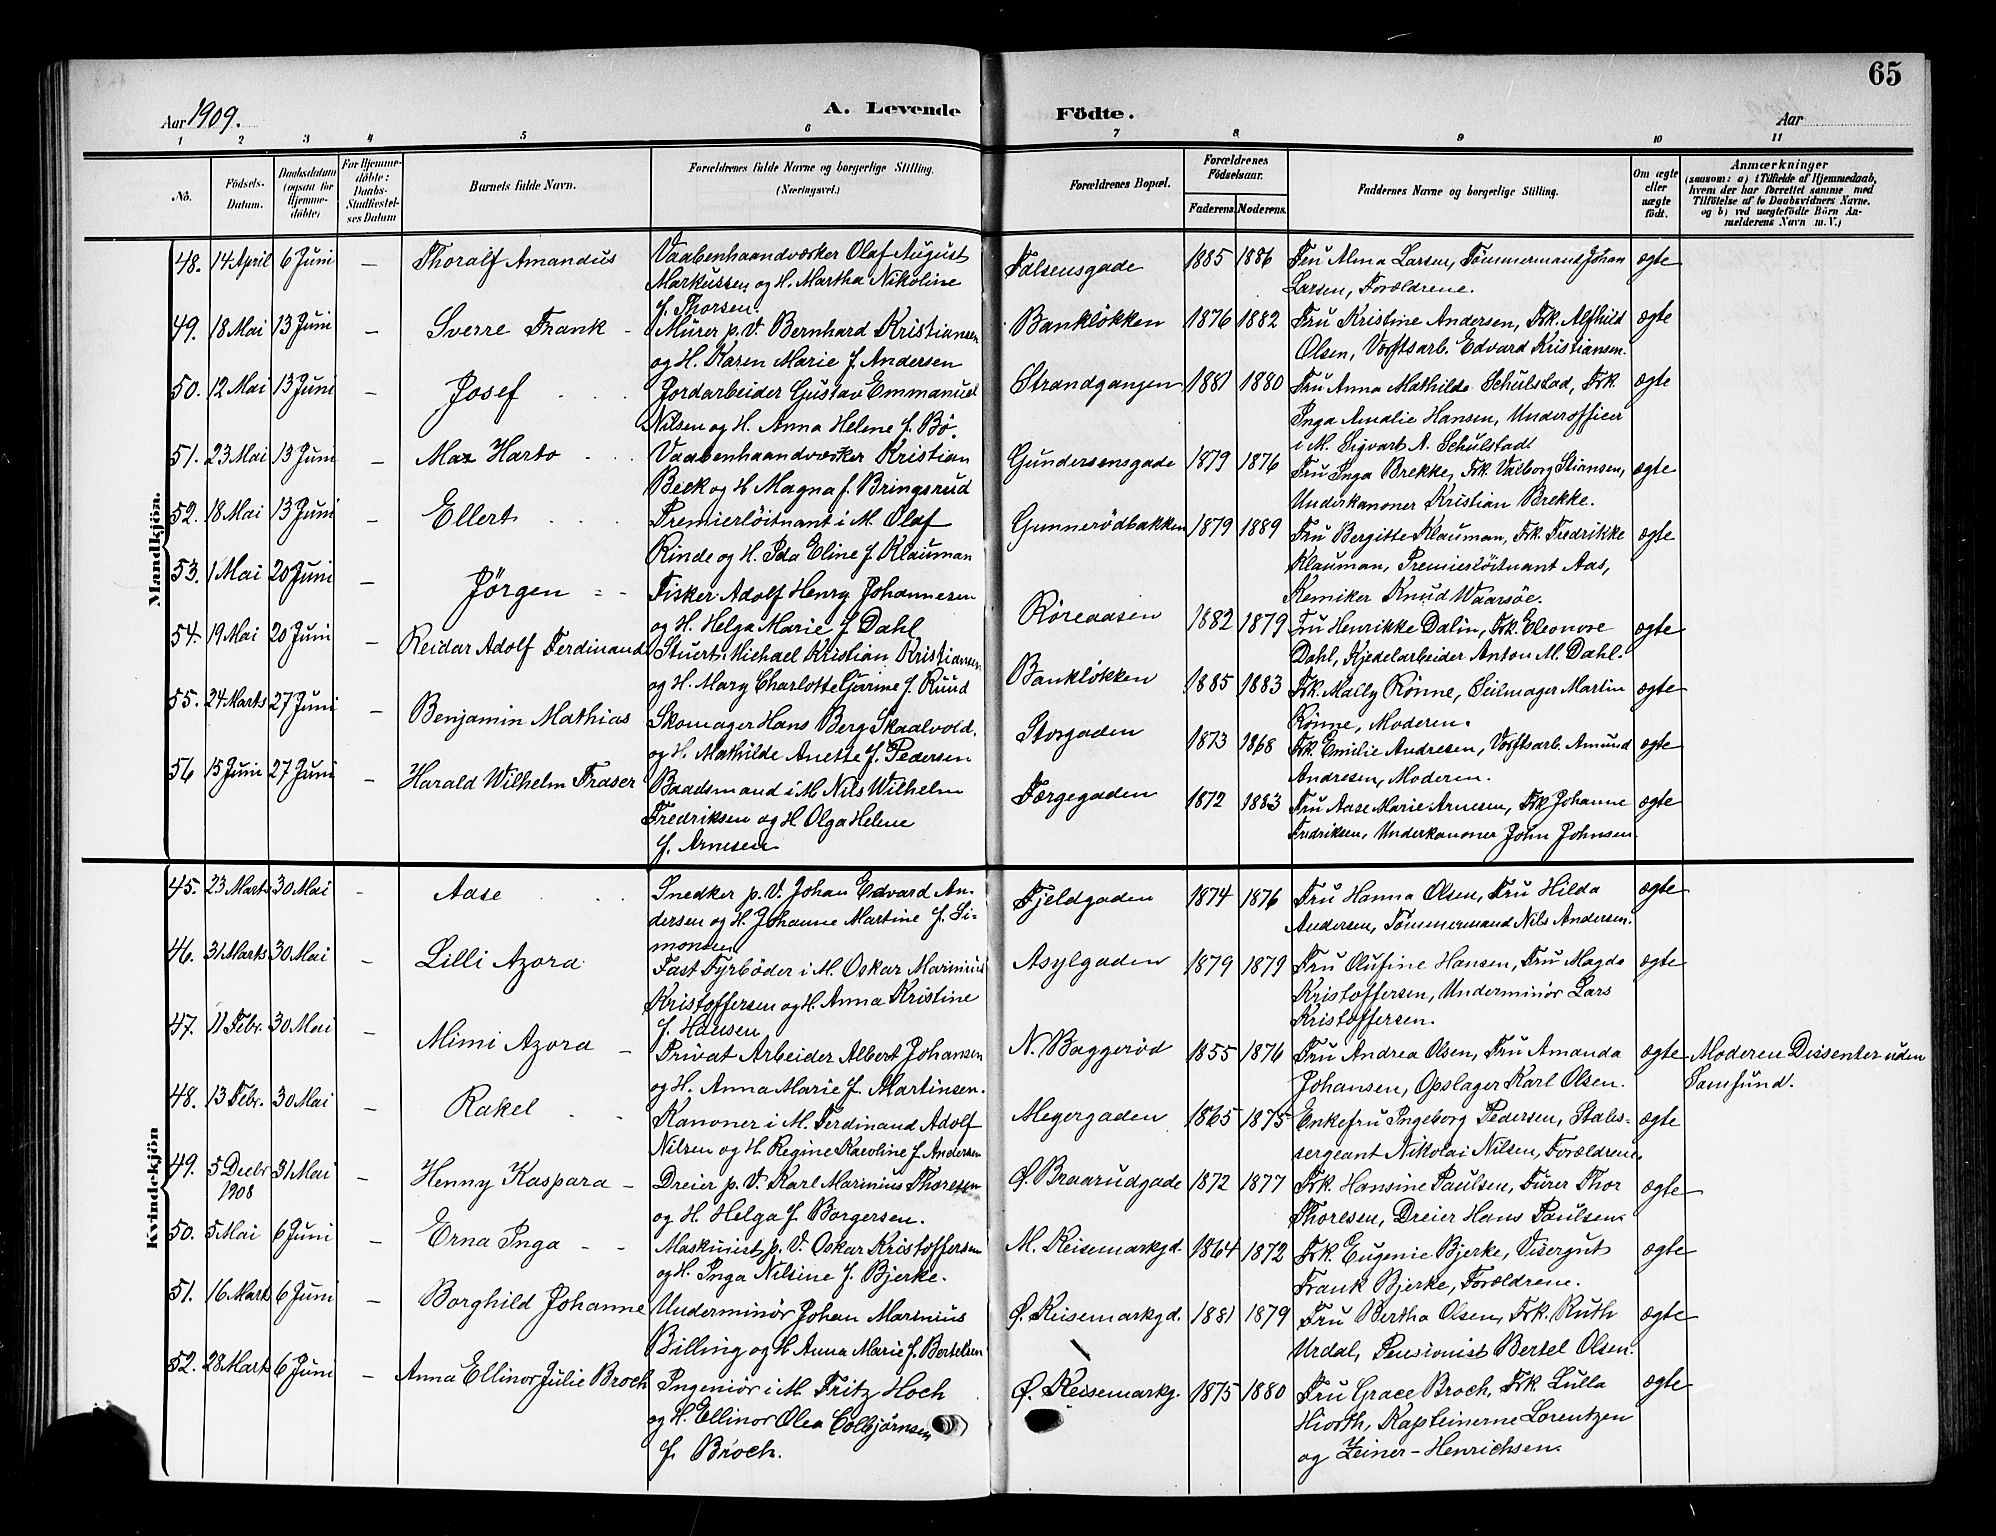 65
Aar 1909.
A. Levende Födte.
Aar
1 2 3 4 5 6 7 8 9 10 11
Nö.
Födsels-
Datum.
Daabsdatum
(ogsaa for
Hjemme-
döbte)
For Hjemme-
döbte:
Daabs-
Stadfæstel-
ses Datum
Barnets fulde Navn.
Forældrenes fulde Navne og borgerlige Stilling.
(Næringsvei.)
Forældrenes Bopæl.
Forældrenes
Födselsaar.
Faderens. Moderens.
Faddernes Navne og borgerlige Stilling.
Om ægte
eller
uægte
födt.
Anmærkninger
(saasom: a) i Tilfælde af Hjemmedaab,
hvem der har forrettet samme med
Tilföielse af to Daabsvidners Navne.
og b) ved uægtefödte Börn An-
melderens Navn m. V.)
Mandkjön.
48. 14 April 6 Juni — Thoralf Amandus Vaabenhaandværker Olaf August Falsensgade 1885 1886 Fru Alma Larsen, Tømmermand Johan ægte
Markussen og H. Martha Nikoline Larsen, Forældrene.
f. Thorsen.
49. 18 Mai 13 Juni — Sverre Frank - Murer p. V. Bernhard Kristiansen Bankløkken 1876 1882 Fru Kristine Andersen, Frk. Alfhild ægte
og H. Karen Marie f. Andersen Olsen, Værftsarb. Edvard Kristiansen.
50. 12 Mai 13 Juni — Josef Jordarbeider Gustav Emmanuel Strandgangen 1881 1880 Fru Anna Mathilde Schulstad, Frk. ægte
Nilsen og H. Anna Helene f. Bø. Inga Amalie Hansen, Underofficer
i M. Sigvart A. Schulstad
51. 23 Mai 13 Juni — Max Harto Vaabenhaandværker Kristian Gundersensgade 1879 1876 Fru Inga Brekke, Frk. Valborg Stiansen, ægte
Beck og H Magna f. Bringsrud Underkanoner Kristian Brekke.
52. 18 Mai 13 Juni — Ellert Premierløitnant i M. Olaf Gunnerødbakken 1879 1889 Fru Bergitte Klauman, Frk. Fredrikke ægte
Rinde og H. Ida Eline f. Klauman Klauman, Premierløitnant Aas,
Kemiker Knud Waarsöe.
53. 1 Mai 20 Juni — Jørgen Fisker Adolf Henry Johannesen Røreaasen 1882 1879 Fru Henrikke Dalin, Frk. Eleonore ægte
og H. Helga Marie f. Dahl Dahl, Kjedelarbeider Anton M. Dahl.
54. 19 Mai 20 Juni — Reidar Adolf Ferdinand Stuert Michael Kristian Kristiansen Bankløkken 1885 1883 Frk. Mally Rönne, Seilmager Martin ægte
og H. Mary Charlotte Gjørine f. Ruud Rønne, Moderen.
55. 24 Marts 27 Juni — Benjamin Mathias Skomager Hans Berg Skaalvold. Storgaden 1873 1868 Frk. Emilie Andresen, Værftsarb. Amund ægte
og H. Mathilde Anette f. Pedersen Andresen, Moderen.
56 15 Juni 27 Juni — Harald Wilhelm Fraser Baadsmand i M Nils Wilhelm Færgegaden 1872 1883 Fru Aase Marie Arnesen, Frk Johanne ægte
Fredriksen og H Olga Helene Fredriksen, Underkanoner John Johnsen.
f. Arnesen
Kvindekjön
45. 23 Marts 30 Mai - Aase Snedker p. V. Johan Edvard An- Fjeldgaden 1874 1876 Fru Hanna Olsen, Fru Hilda ægte
dersen og H. Johanne Martine f. Si- Andersen, Tømmermand Nils Andersen.
monsen
46. 31 Marts 30 Mai — Lilli Azora Fast Fyrbøder i M. Oskar Marinius Asylgaden 1879 1879 Fru Olufine Hansen, Fru Magda ægte
Kristoffersen og H. Anna Kristine Kristoffersen, Underminör Lars
f. Hansen Kristoffersen.
47. 11 Febr. 30 Mai — Mimi Azora — Privat Arbeider Albert Johansen N. Baggerød 1855 1876 Fru Andrea Olsen, Fru Amanda ægte Moderen Dissenter uden
og H. Anna Marie f. Martinsen. Johansen, Opslager Karl Olsen. Samfund.
48. 13 Febr. 30 Mai — Rakel Kanoner i M. Ferdinand Adolf Meyergaden 1865 1875 Enkefru Ingeborg Pedersen, Stabs- ægte
Nilsen og H Regine Karoline f. Andersen sergeant Nikolai Nilsen, Forældrene.
49. 5 Decbr 31 Mai — Henny Kaspara — Dreier p. V. Karl Marinius Thoresen Ø. Braarudgade 1872 1877 Frk. Hansine Paulsen, Fürer Thor ægte
1908 og H. Helga f. Borgersen. Thoresen, Dreier Hans Paulsen.
50. 5 Mai 6 Juni — Erna Inga Maskinist p. V. Oskar Kristoffersen M. Keisemarkgd. 1864 1872 Frk. Eugenie Bjerke, Visergut ægte
og H. Inga Nilsine f. Bjerke. Frank Bjerke, Forældrene.
51. 16 Marts 6 Juni — Borghild Johanne Underminör Johan Marinius Ø. Keisemarkgd. 1881 1879 Fru Bertha Olsen, Frk. Ruth ægte
Billing og H Anna Marie f. Bertelsen Urdal, Pensionist Bertel Olsen.
52. 28 Marts 6 Juni — Anna Ellinor Julie Broch Ingeniör i M. Fritz Hoch Ø. Keisemarkg. 1875 1880 Fru Grace Broch, Frk. Lulla ægte
og H. Ellinor Olea Colbjørnsen Hiorth, Kapteinerne Lorentzen
f. Broch. og Zeiner-Henrichsen.